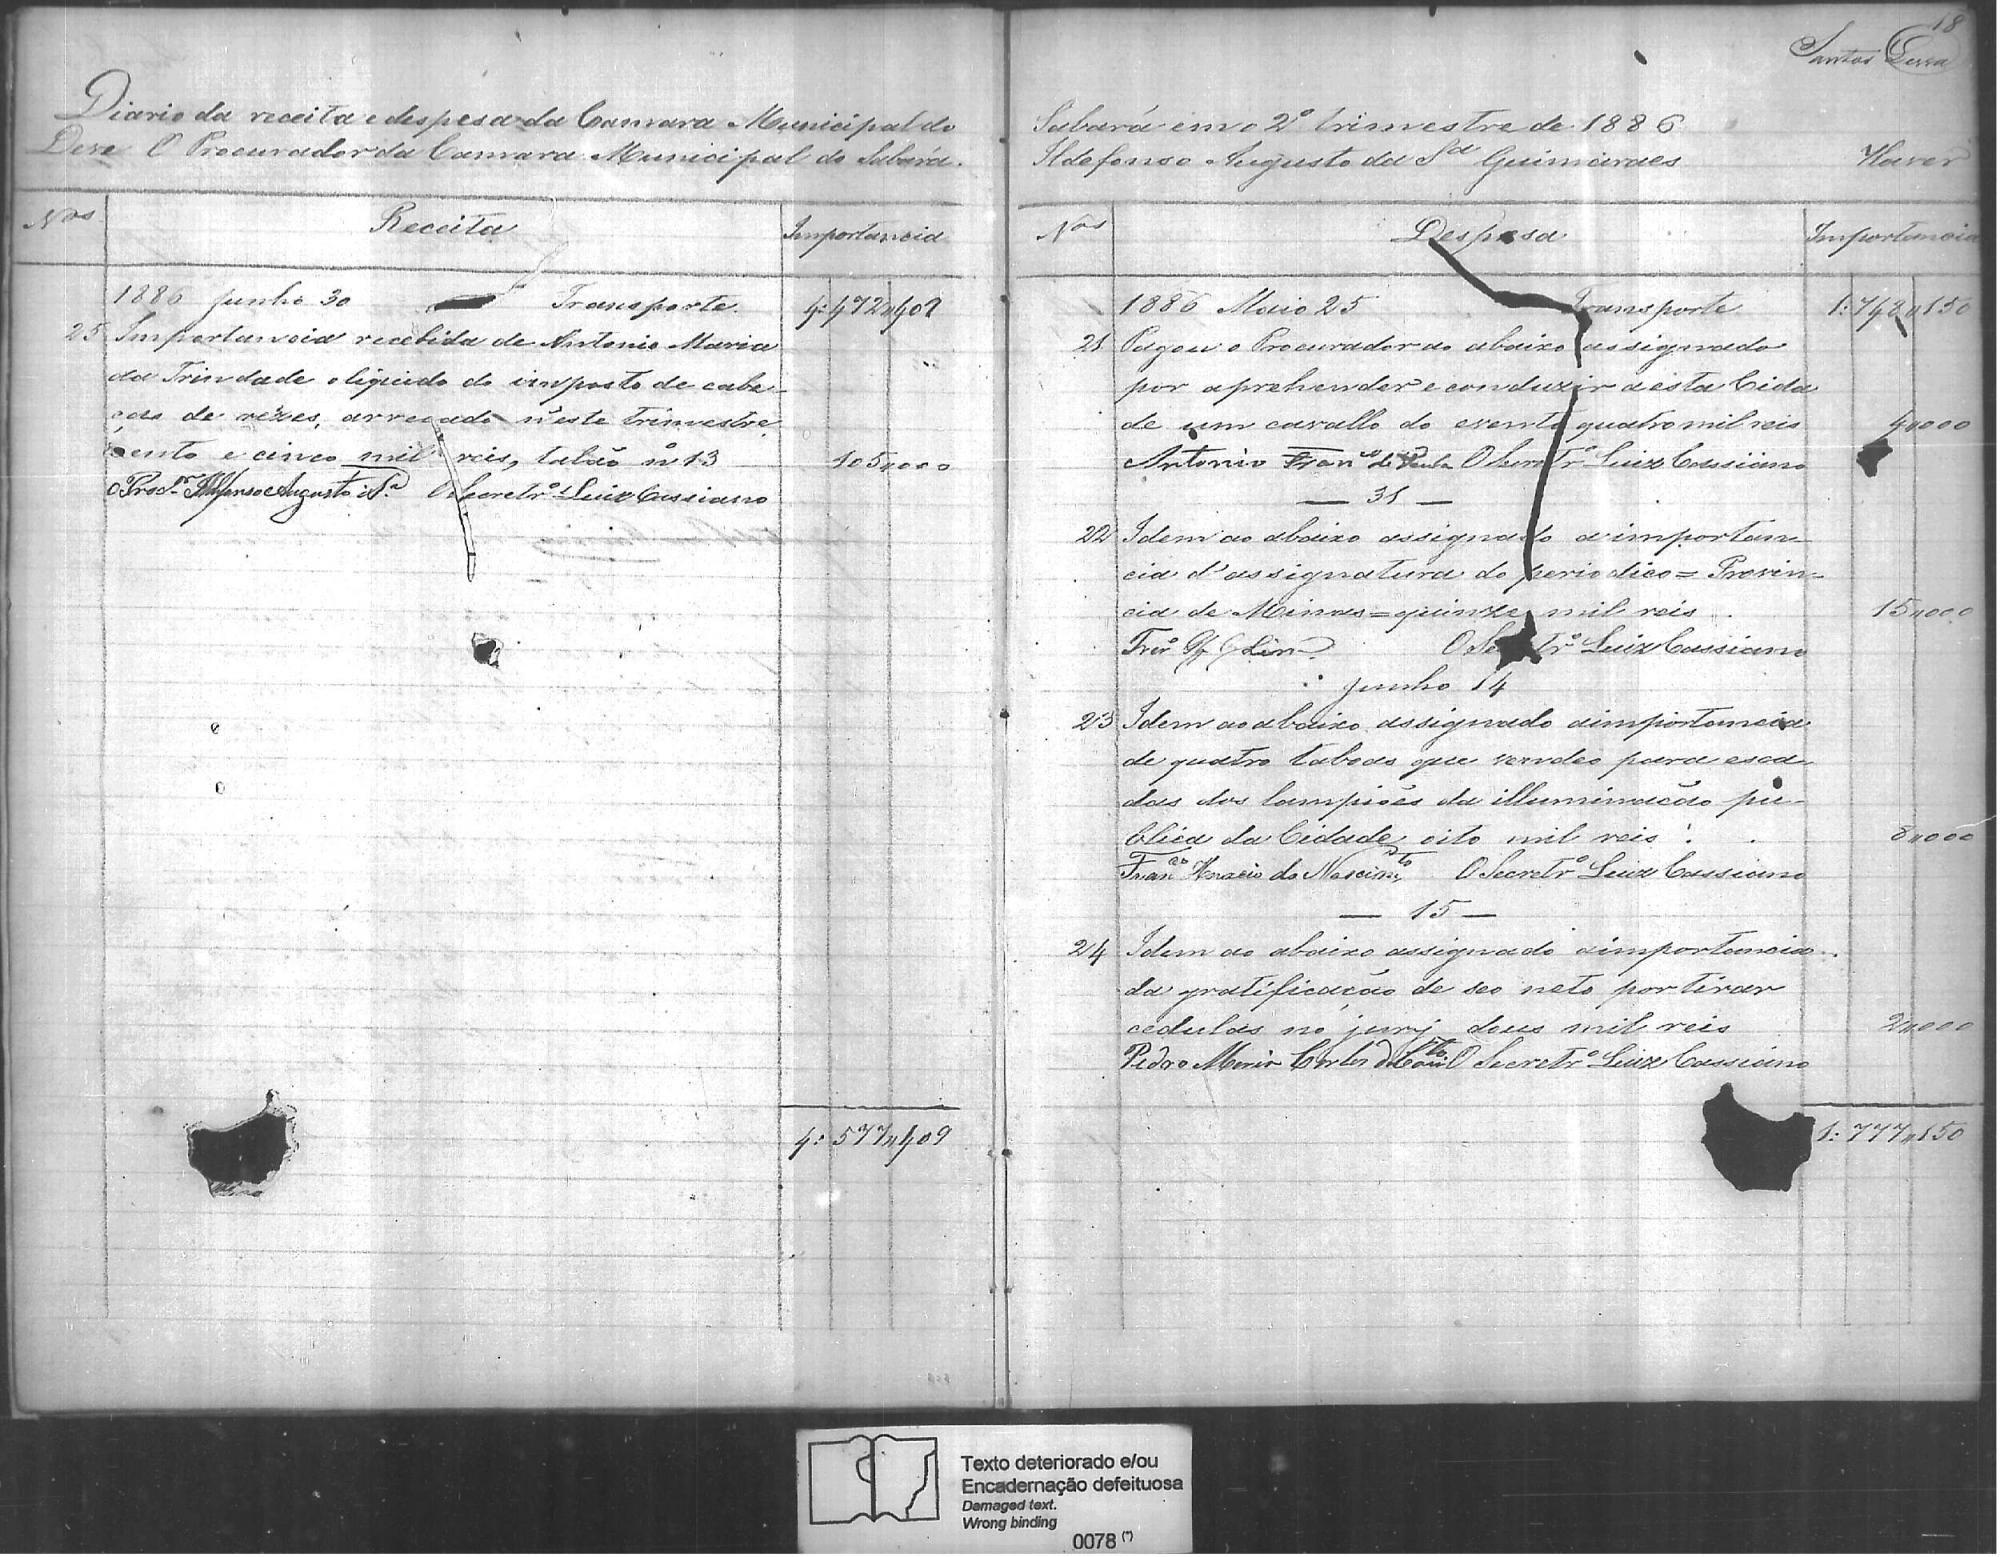 18
Santos
Diario da receita e despesa da Camara Municipal do
Deve O Procurador da Camara Municipal do Sabará.
Nos Receita Importancia
1886 Junho 30 Transporte 4:472"409
25 Importancia recebida de Antonio Maria
da Trindade o liquido do imposto de cabe-
ças de rêzes, arrecado n'este trimestre
cento e cinco mil reis, talão nº 13 105"000
O Procr Augusto O Secretrº Luiz Cassiano
4:577"409
Sabará em o 2º trimestre de 1886
Ildefonso Augusto da Sª Guimarães Haver
Nos Despesa Importancia
1886 Maio 25 Transporte 1:748"150
21 Pagou o Procurador ao abaixo assignado
por aprehender e conduzir a esta Cida
de um cavallo do evento quatro mil reis 4"000
Antonio Franco de Paula O Secretrº Luiz Cassiano
— 31 —
22 Idem ao abaixo assignado a importan
cia d'assignatura do periodico = Provin-
cia de Minas = quinze mil reis 15"000
O Secretrº Luiz Cassiano
Junho 14
23 Idem ao abaixo assignado a importancia
de quatro taboas que vendeo para esca-
das dos lampiões da illuminação pu-
blica da Cidade, oito mil reis 8"000
Franco Horacio do Nascimto O Secretrº Luiz Cassiano
— 15 —
24 Idem ao abaixo assignado a importancia
da gratificação de seo neto por tirar
cedulas no jury dous mil reis 2"000
Pedro Maria O Secretrº Luiz Cassiano
1:777"150
Texto deteriorado e/ou
Encadernação defeituosa
Damaged text.
Wrong binding
0078 (*)